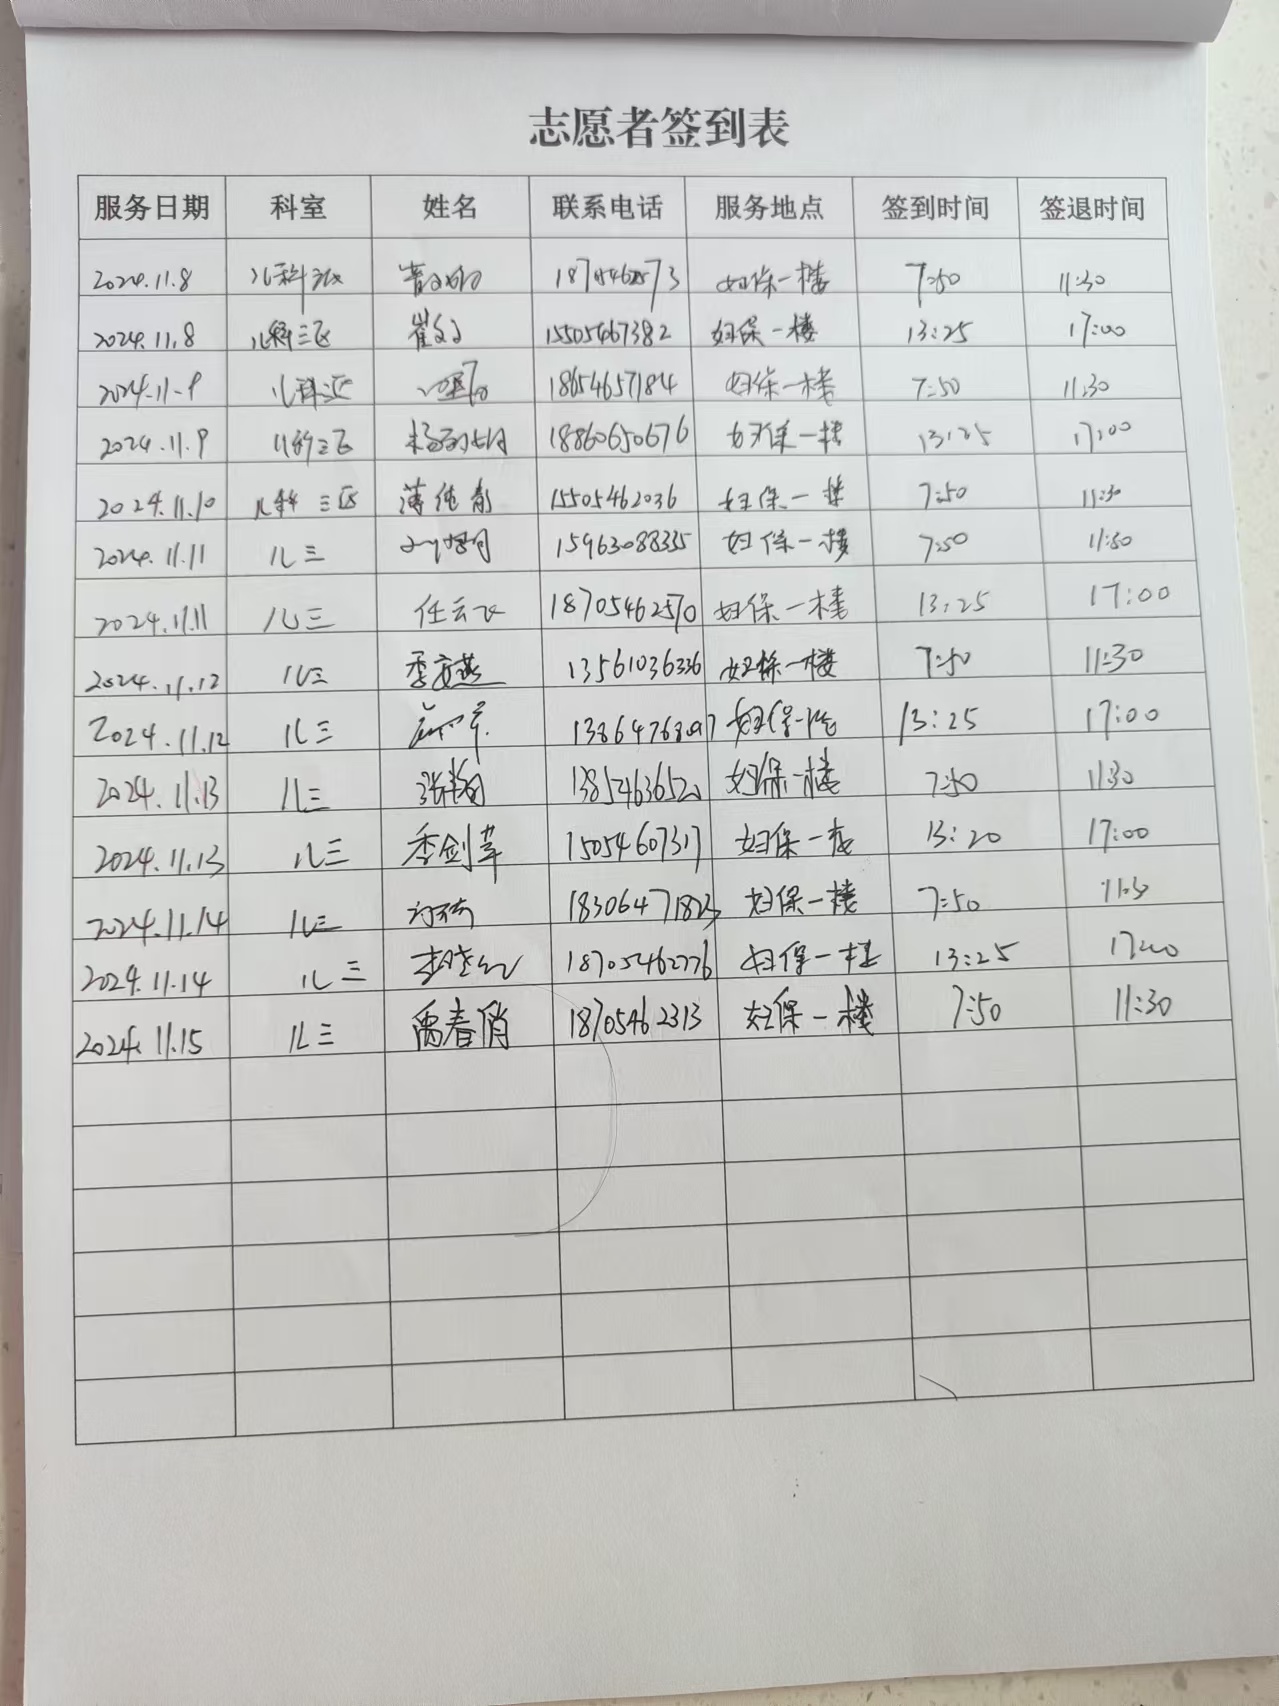 志愿者签到表
服务日期 科室 姓名 联系电话 服务地点 签到时间 签退时间
2024.11.8 儿科三区 妇保一楼 7:50 11:30
2024.11.8 儿科三区 崔 15505467382 妇保一楼 13:25 17:00
2024.11.9 儿科三区 18654657184 妇保一楼 7:50 11:30
2024.11.9 儿科三区 杨 18860650676 妇保一楼 13:25 17:00
2024.11.10 儿科三区 薄纯青 15505462036 妇保一楼 7:50 11:30
2024.11.11 儿三 15963088335 妇保一楼 7:50 11:30
2024.11.11 儿三 任云飞 18705462570 妇保一楼 13:25 17:00
2024.11.12 儿三 季彦燕 13561036336 妇保一楼 7:50 11:30
2024.11.12 儿三 妇保一楼 13:25 17:00
2024.11.13 儿三 张 13854636520 妇保一楼 7:50 11:30
2024.11.13 儿三 季剑苹 15054607317 妇保一楼 13:20 17:00
2024.11.14 儿三 18306471823 妇保一楼 7:50 11:30
2024.11.14 儿三 18705462776 妇保一楼 13:25 17:00
2024.11.15 儿三 禹春俏 18705462313 妇保一楼 7:50 11:30